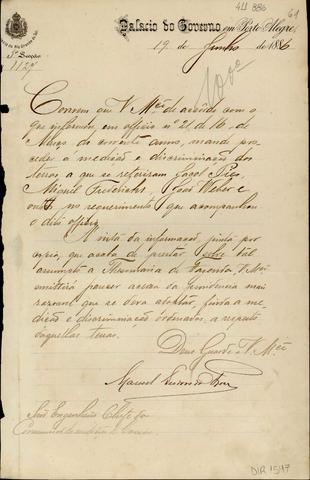 411 886
61
Palacio do Governo em Porto Alegre
19 de Junho de 1886
3ª Secção
1127
Convem que V Mcê de acordo com o
que informou em officio nº 21 de 16 de
Março do corrente anno, mande pro
ceder a medição e discriminação das
terras a que se referiram Jacob
Miguel Friedrichs, Weber e
outros no requerimento que acompanhou
o dito officio
A vista da informação junta por
copia, que acaba de prestar sobre tal
assumpto a Thesouraria de Fazenda, V Mcê
emittirá parecer acerca da providencia mais
razoavel que se deva adoptar, finda a me
dição e discriminação ordenadas, a respeito
daquellas terras.
Deus Guarde a V. Mcê
Manuel
Snr Engenheiro Chefe da
Commissão de medição de
DIR 1547